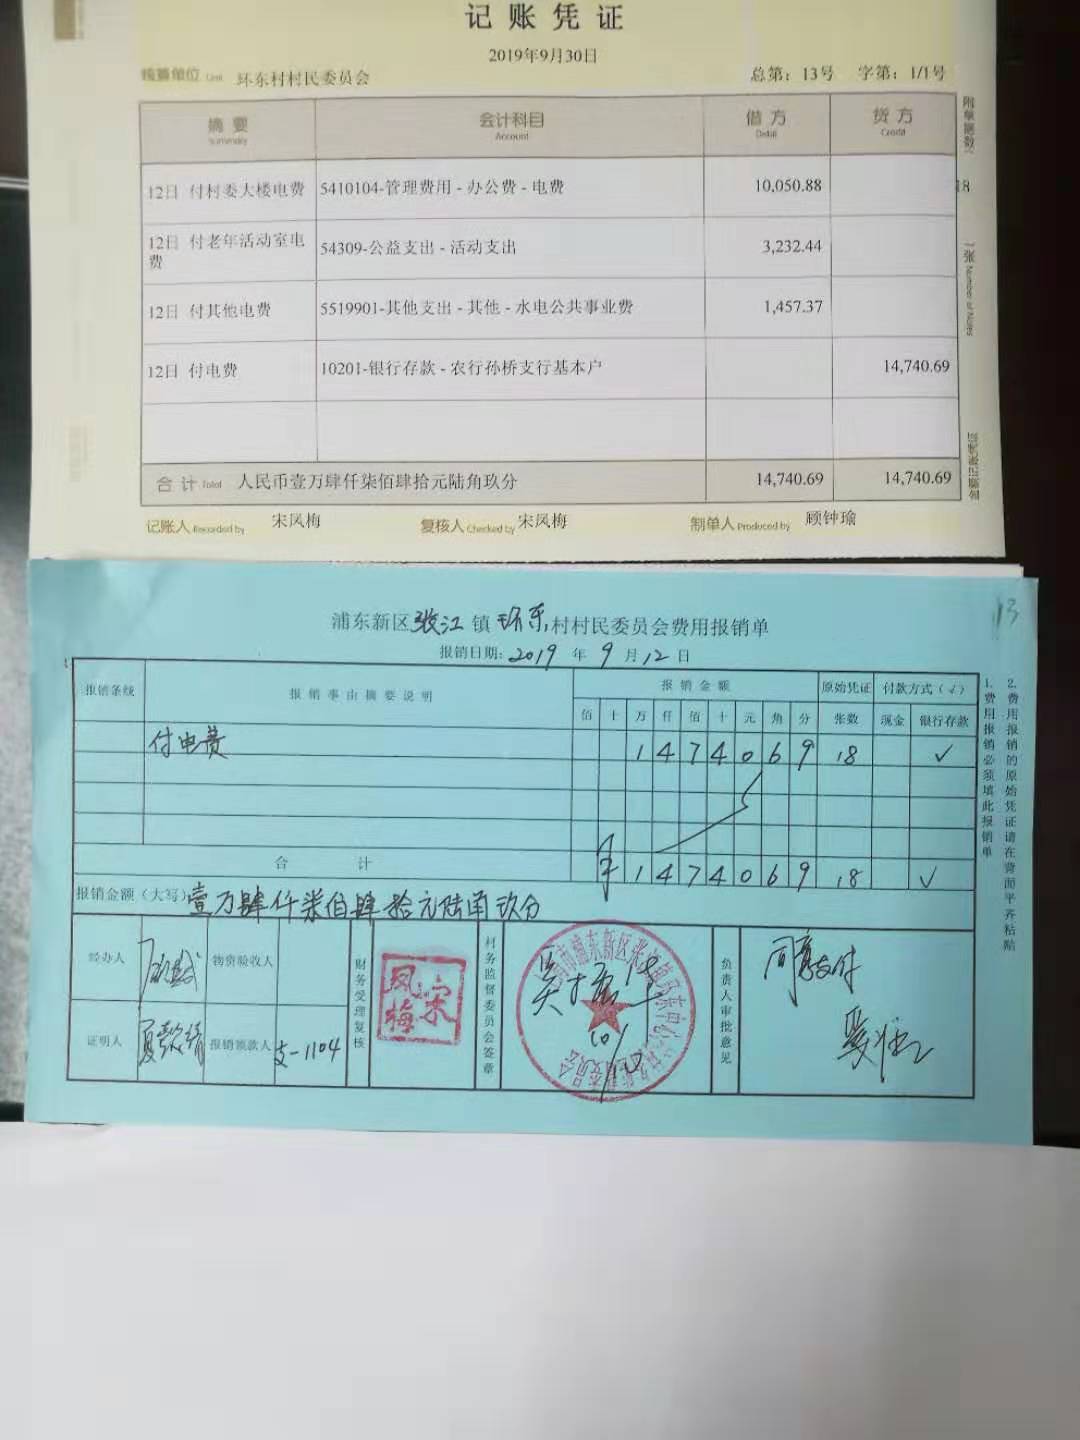 记账凭证
2019年9月30日
核算单位 Unit 环东村村民委员会 总第：13号 字第：1/1号
摘要 会计科目 借方 贷方
Summary Account Debit Credit
12日 付村委大楼电费 5410104-管理费用 - 办公费 - 电费 10,050.88
12日 付老年活动室电费 54309-公益支出 - 活动支出 3,232.44
12日 付其他电费 5519901-其他支出 - 其他 - 水电公共事业费 1,457.37
12日 付电费 10201-银行存款 - 农行孙桥支行基本户 14,740.69
合计 Total 人民币壹万肆仟柒佰肆拾元陆角玖分 14,740.69 14,740.69
记账人 Recorded by 宋凤梅 复核人 Checked by 宋凤梅 制单人 Produced by 顾钟瑜
附单据数 18 张 Number of Notes
13
浦东新区张江镇环东村村民委员会费用报销单
报销日期：2019年9月12日
报销条线 报销事由摘要说明 报销金额 原始凭证 付款方式（√）
佰 十 万 仟 佰 十 元 角 分 张数 现金 银行存款
付电费 1 4 7 4 0 6 9 18 √
合计 ¥ 1 4 7 4 0 6 9 18 √
报销金额（大写） 壹万肆仟柒佰肆拾元陆角玖分
经办人 物资验收人 财务受理复核 凤梅宋 村务监督委员会签章 负责人审批意见 同意支付
证明人 报销领款人 支-1104
1.费用报销必须填此报销单
2.费用报销的原始凭证请在背面平齐粘贴